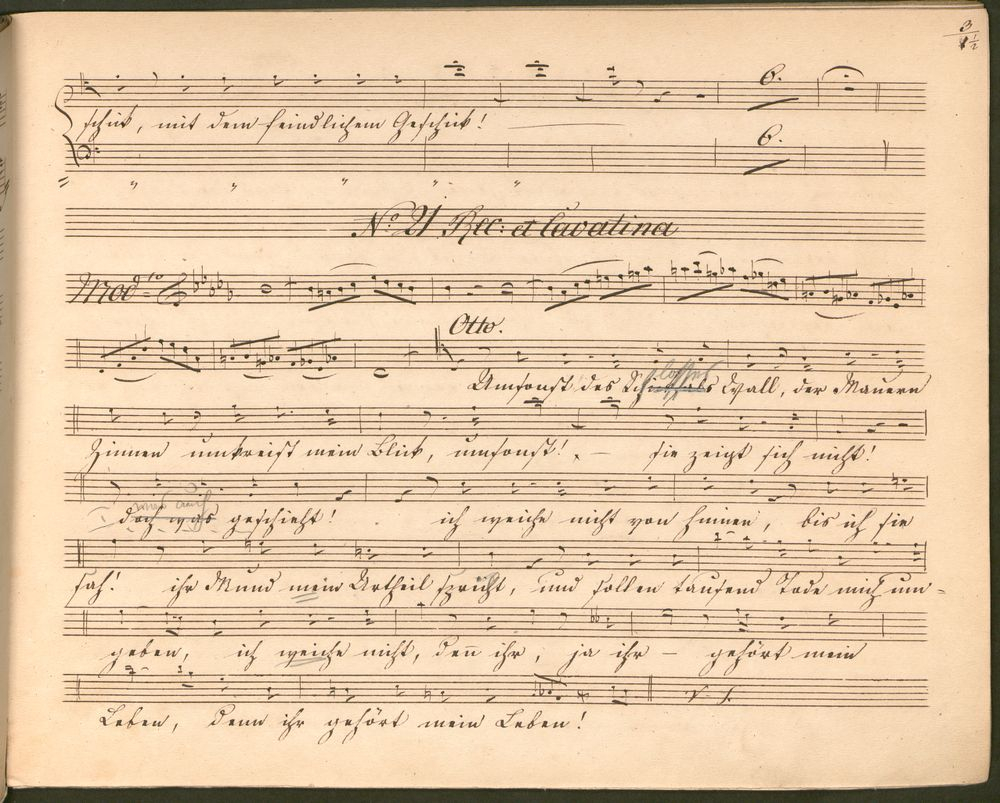 3
1/2
6.
schick, mit dem feindlichem Geschick!
6.
No. 21 Rec: et Cavatina
Modto
Otto.
Umsonst des Schlosses Wall, der Mauern
Zinnen umkreist mein Blick, umsonst! – sie zeigt sich nicht!
was auch
doch was geschieht! ich weiche nicht von hinnen, bis ich sie
sah! ihr Mund mein Urtheil spricht, und sollen tausend Tode mich um-
geben, ich weiche nicht, den ihr, ja ihr – gehört mein
Leben, denn ihr gehört mein Leben!